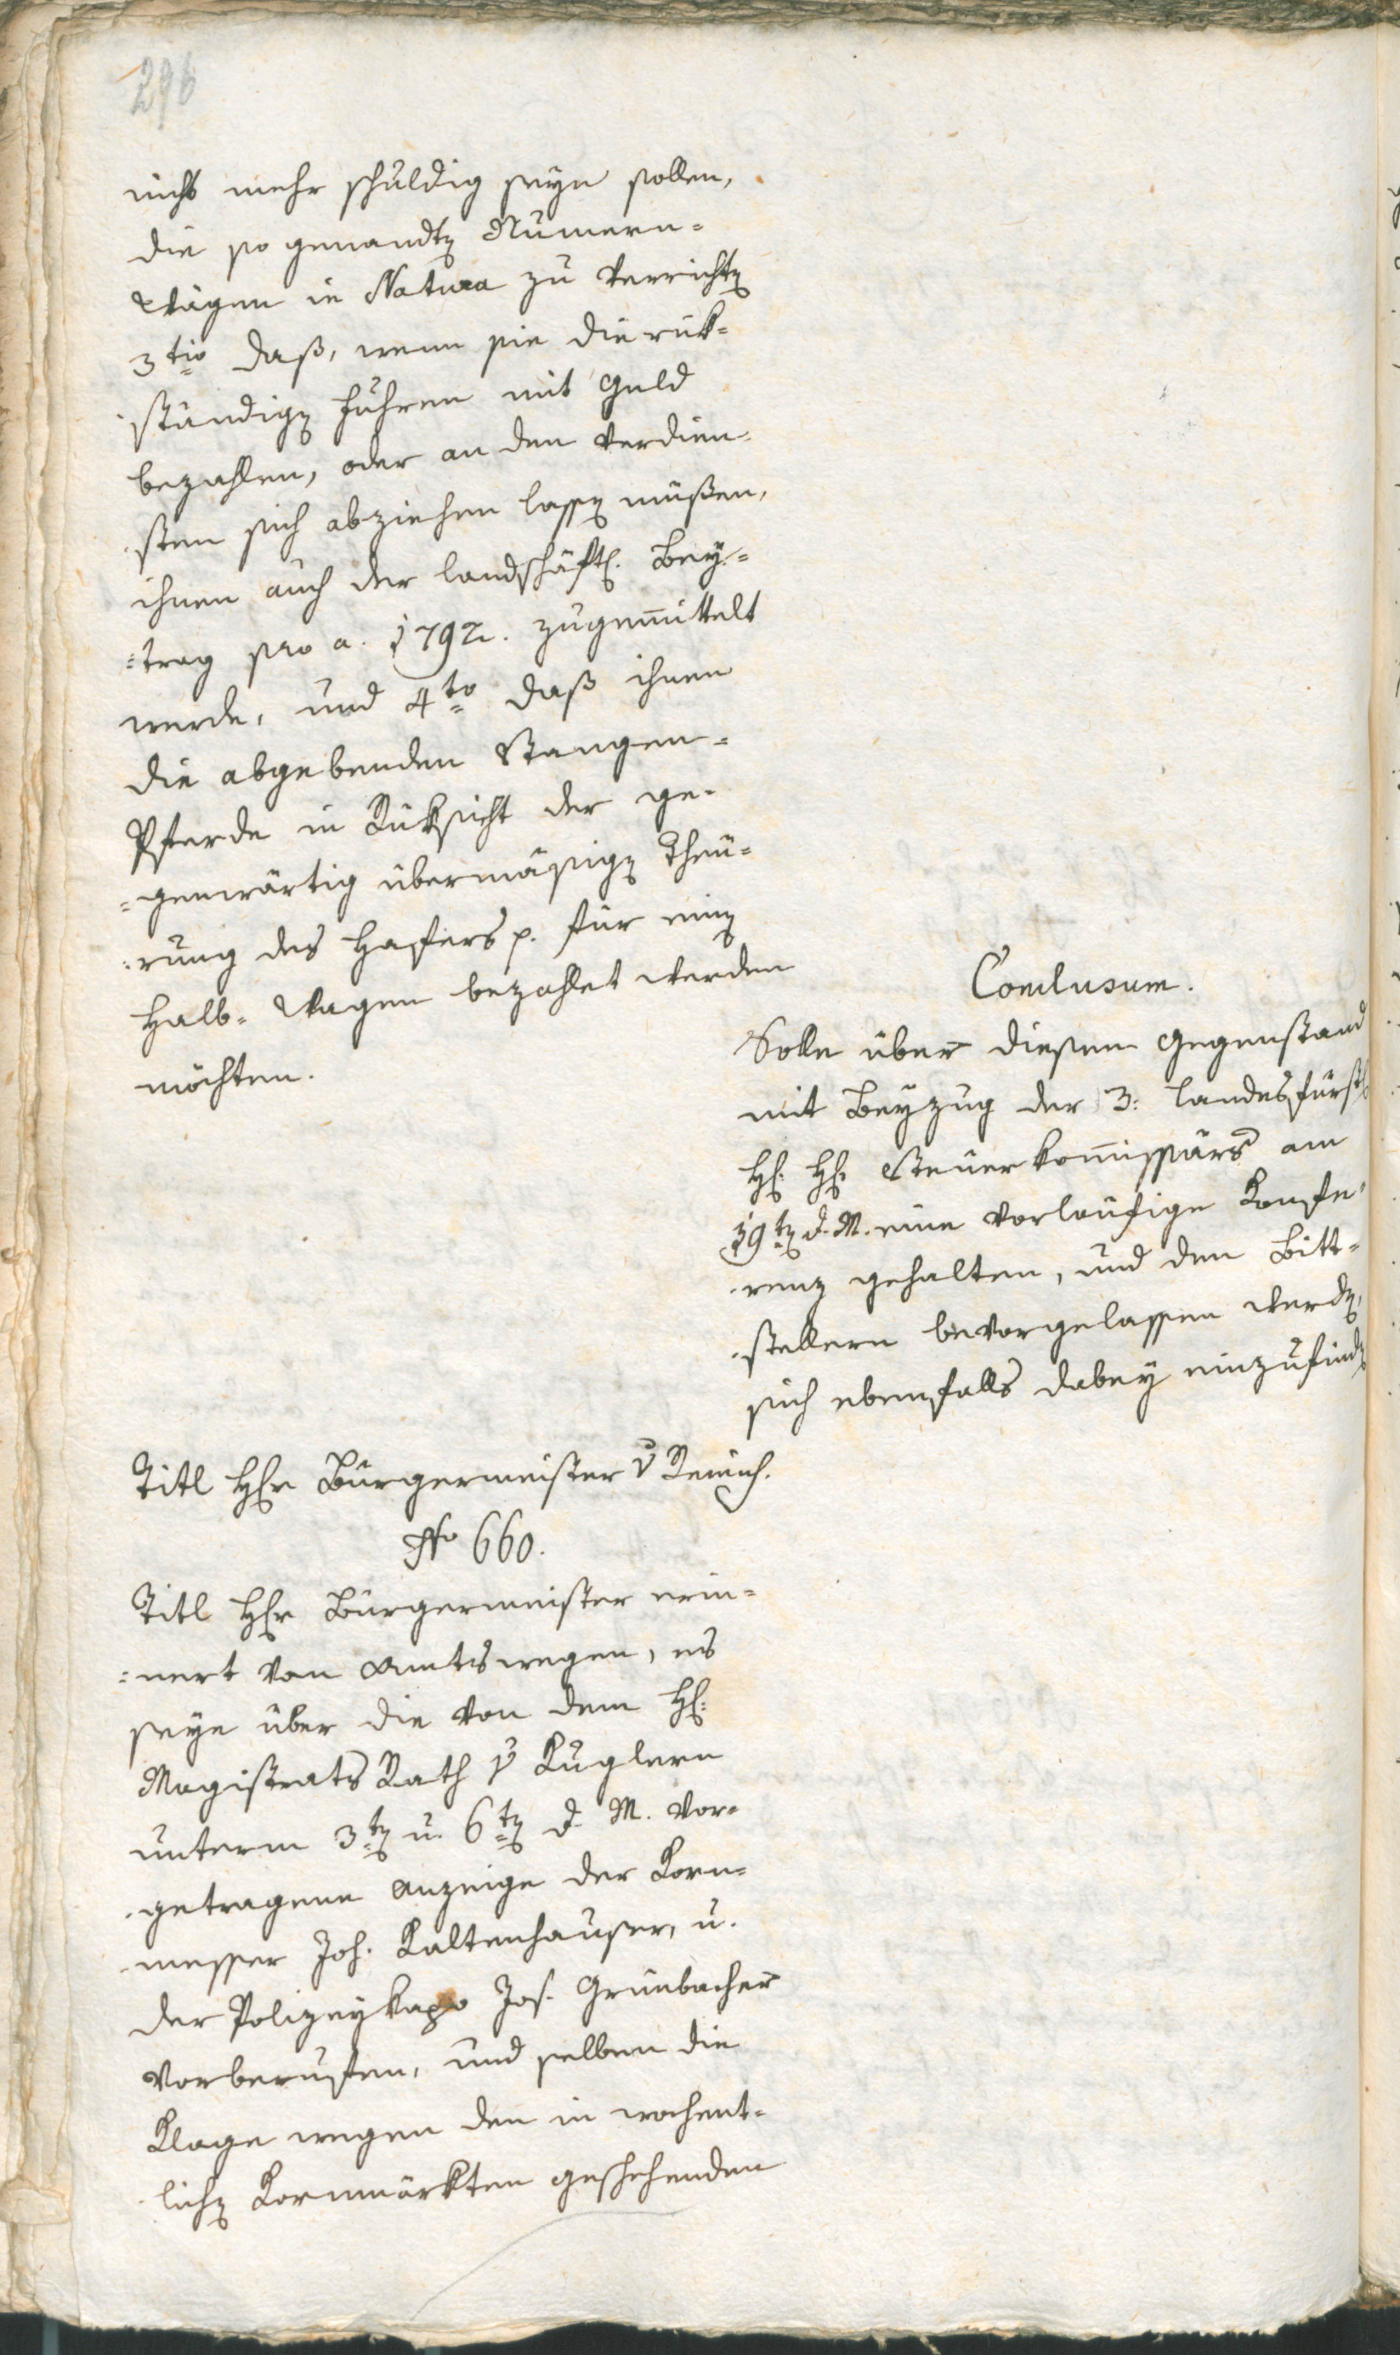 296
nicht mehr schuldig seyn sollen,
die so genandten Numern-
Wägen in Natura zu verrichten
3tio daß, wenn sie die rük-
ständigen Fuhren mit Geld
bezahlen, oder an den Verdien-
sten sich abziehen lassen müßen,
ihnen auch der landschäftl. Bey-
=trag pro a. 1792. zugemittelt
werde, und 4to daß ihnen
die abgebenden Stangen-
Pferde in Rüksicht der ge-
=genwärtig übermäßigen Theu-
=rung des Hafers p. für einen
Halb-Wagen bezahlet werden
möchten.
Conclusum.
Solle über diesen Gegenstand
mit Beyzug der 3: landesfürstl
H. H. Steuerkommissärs am
19ten d. M. eine vorläufige Konfe-
renz gehalten, und den Bitt-
stellern bevorgelassen werden,
sich ebenfalls dabey einzufinden
Titl Herr Bürgermeister v
No 660.
Titl Herr Bürgermeister erin-
=nert von Amtswegen, es
seye über die von dem H:
Magistrats Rath v Kuglern
unterm 3ten u. 6ten d. M. vor-
getragene Anzeige der Korn-
messer Joh. Kaltenhauser, u.
der Polizeykapo Jos. Grünbacher
vorberuffen, und selben die
Klage wegen den in wochent-
lichen Kornmärkten geschehenden